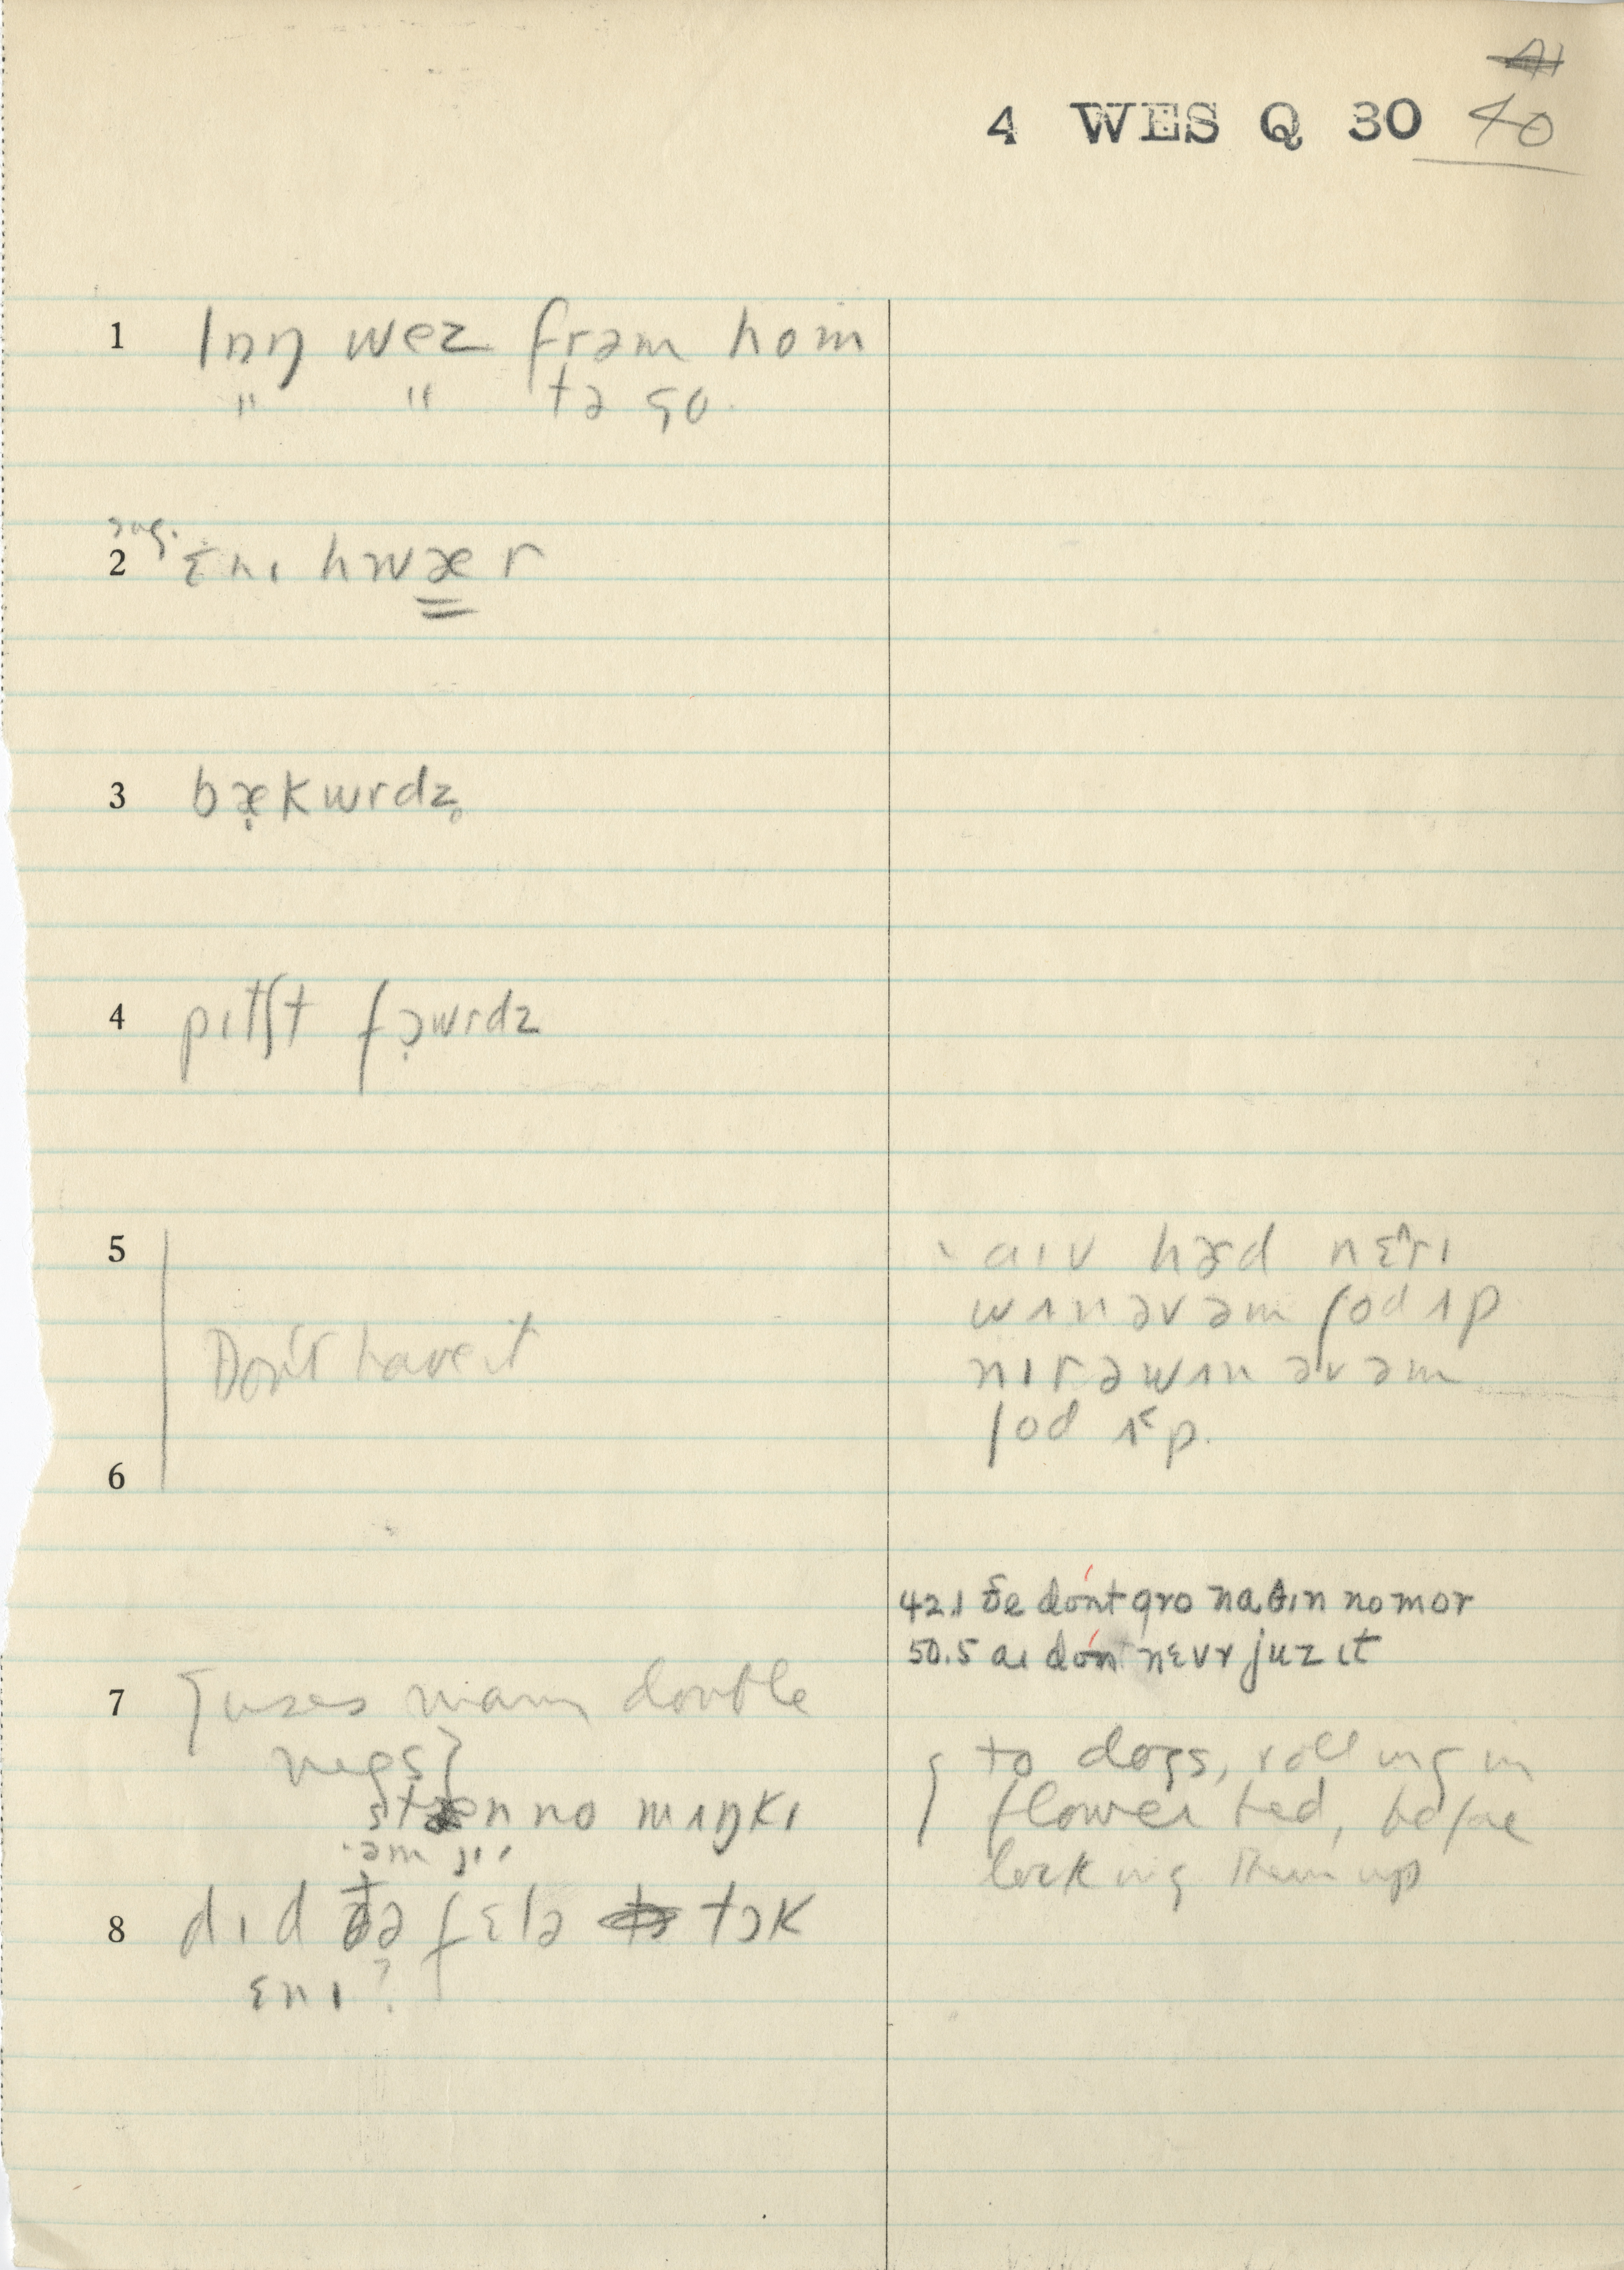 4 WES Q 30 40
1 lɒŋ wez frəm hom
" " tə go.
sug.
2 ɛnɪ hwær
3 bækwrdz̥
4 pɪtʃt fɔwrdz
5
Don't have it
6
aɪv hæd nɛrɪ
wʌn əv əm ʃod ʌp
nɪr ə wʌn əv əm
ʃod ʌp.
42.1 ðe dónt gro naθɪn no mor
50.5 aɪ dónt nɛvr juz ɪt
7 {uses many double
negs}
stæn no mʌŋkɪ
to dogs, rolling in
flower bed, before
locking them up
8 dɪd ðə fɛlə tɔk
ɛnɪ?